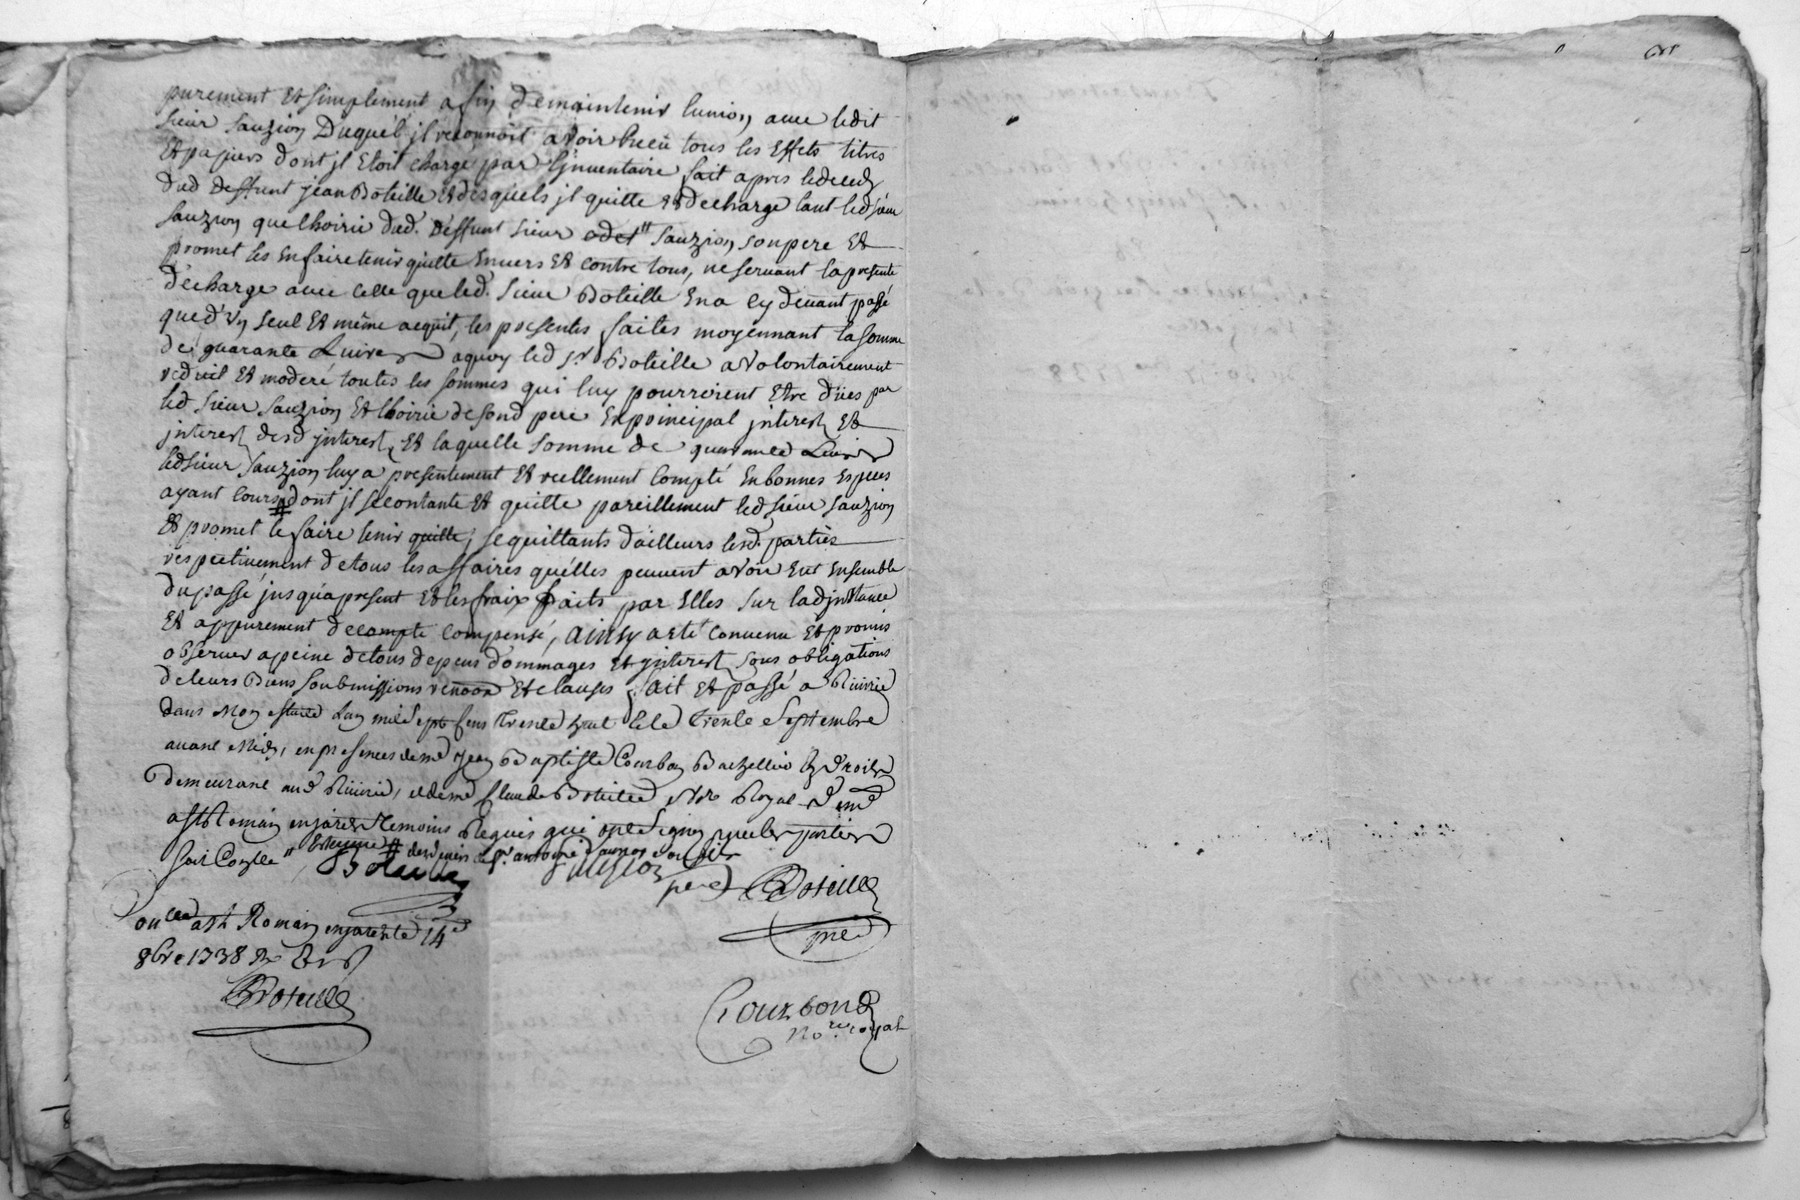 purement Et simplement afin de maintenir lunion avec ledit
sieur sauzion Duquél jl reconnoit avoir Receu tous les Effets titres
Et papiers dont jl Etoit chargé par Linventaire fait apres le deced
dud deffunt jean Boteille Et desquels jl quitte Et decharge tant led sieur
sauzion que lhoirie dud. Deffunt sieur odet sauzion, son pere Et
promet les En faire tenir quitte Envers Et contre tous, ne servant la presente
décharge avec celle que led. sieur Boteille En a cy devant passé
que d'un seul Et même acquit, les presentes faites moyennant la somme
de quarante Livres a quoy led sr Boteille a volontairement
reduit Et moderé toutes les sommes qui luy pourroient Etre dües par
led sieur sauzion Et lhoirie de sond pere En principal jnterest Et
jnterest desd jnterest, Et laquelle somme de quarante Livres
led sieur sauzion luy a presentement Et reellement compté En bonnes Especes
ayant cours dont jl se contante Et quitte pareillement led sieur sauzion
Et promet le faire tenir quitte, se quittants d'ailleurs lesd. parties
respectivement de tous les affaires qu'elles peuvent avoir Eut Ensemble
du passé jusqu'a present Et les fraix faits par Elles sur lad jnstance
Et appurement de compte compensé, Ainsy a eté convenu Et promis
observer a peine de tous depens dommages Et jnterest sous obligations
de leurs Biens soubmissions renon̄on Et clauses, fait Et passé a Riuirie
dans Mon Estude Lan mil Sept Cens Trente huit Et le Trente Septembre
avant Midy, en presences de me Jean Baptiste Courbon Bachellier En Droits
demeurant aud Riuirie, et de me Claude Boteille Nore Royal
a st Romain en jarest temoins Requis qui ont Signez avec les parties
soit Conlle Boteille sauzion
pnt Boteille
pnt
Conlle a st Romain en jarest le 14e
8bre 1738 Rx
Boteille
Courbon
Nore royal